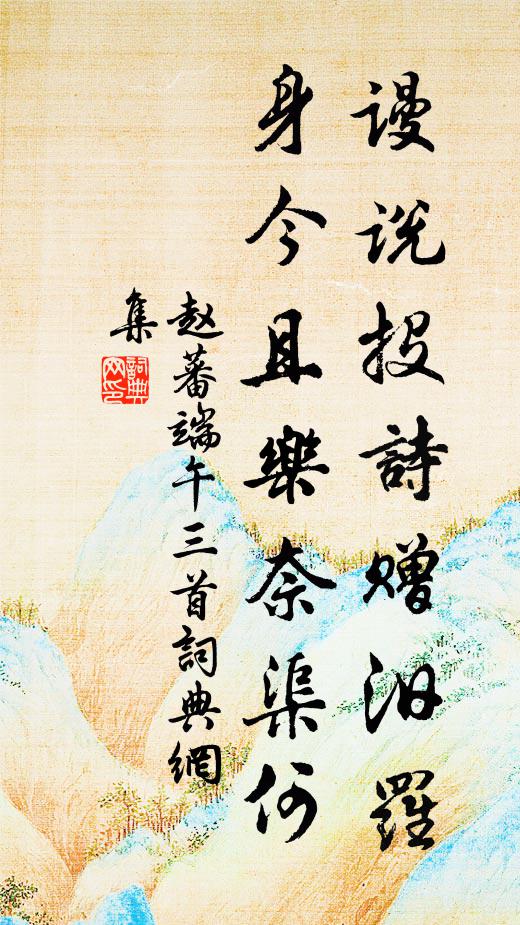 谩说投詩赠汨羅
身今且樂奈渠何
赵蕃端午三首詞典網
集
詞典网印